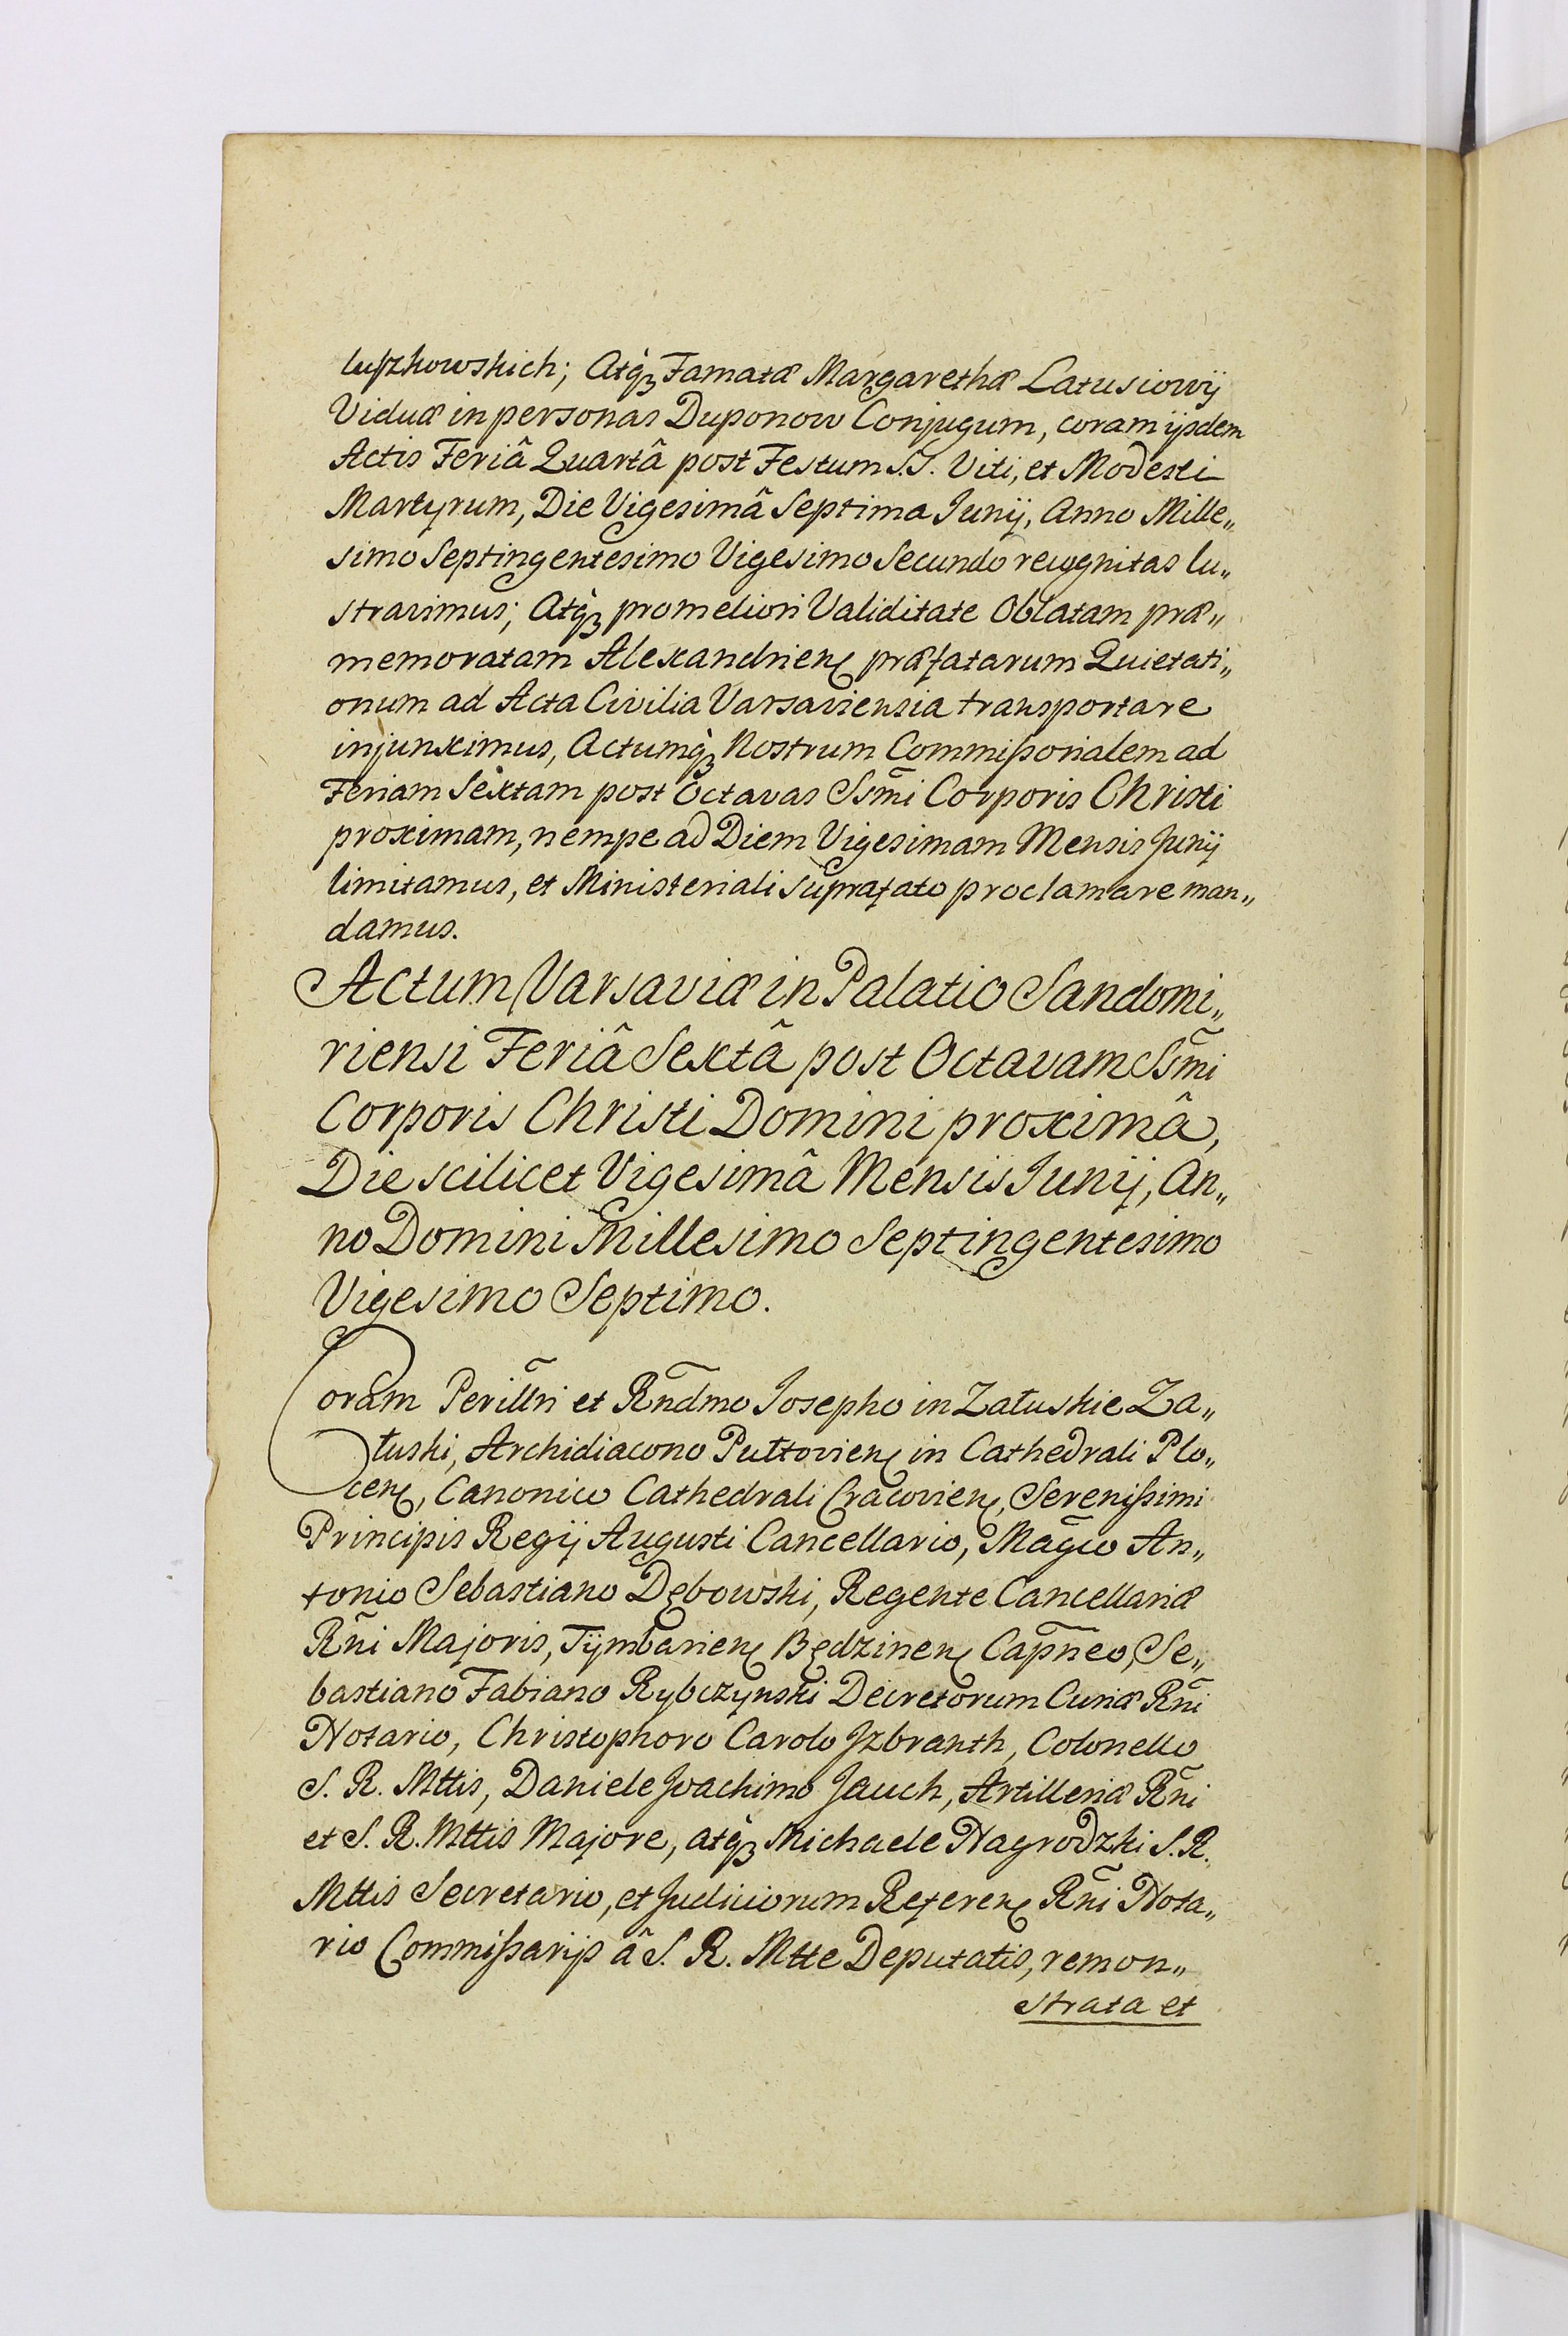 luſzkowskich; Atq́ꝫ Famatæ Margarethæ Latusiowÿ
Viduæ in personas Duponow Conjugum, coram ijsdem
Actis Feriâ Quartâ post Festum S.S. Viti, et Modesti
Martyrum, Die Vigesimâ Septima Junij, Anno Mille„
simo Septingentesimo Vigesimo Secundo recognitas lu„
stravimus; Atq́ꝫ pro meliori Validitate Oblatam præ„
memoratam Alexandrien præfatarum Quietati„
onum ad Acta Civilia Varsaviensia transportare
injunximus, Actumq́ꝫ Nostrum Commißorialem ad
Feriam Sextam post Octavas Ssm̃i Corporis Christi
proximam, nempe ad Diem Vigesimam Mensis Junij
limitamus, et Ministeriali suprafato proclamare man„
damus.
Actum Varsaviæ in Palatio Sandomi„
riensi Feriâ Sextâ post Octavam Ssm̃i
Corporis Christi Domini proximâ,
Die scilicet Vigesimâ Mensis Junij, An„
no Domini Millesimo Septingentesimo
Vigesimo Septimo.
Coram Perill̃ri et Rñdmo Josepho in Załuskie Za„
łuski, Archidiacono Pułtovien in Cathedrali Plo„
cen, Canonico Cathedrali Cracovien, Serenißimi
Principis Regij Augusti Cancellario, Magc̃o An„
tonio Sebastiano Dębowski, Regente Cancellariæ
Rñi Majoris, Tÿmbarien Będzinen Capñeo, Se„
bastiano Fabiano Rybczynski Decretorum Curiæ Rñi
Notario, Christophoro Carolo Jzbranth, Colonello
S. R. Mttis, Daniele Joachimo Jauch, Artilleriæ Rñi
et S. R. Mttis Majore, atq́ꝫ Michaele Nagrodzki S. R.
Mttis Secretario, et Judiciorum Referen Rñi Nota„
rio Commißarijs â S. R. Mtte Deputatis, remon„
strata et